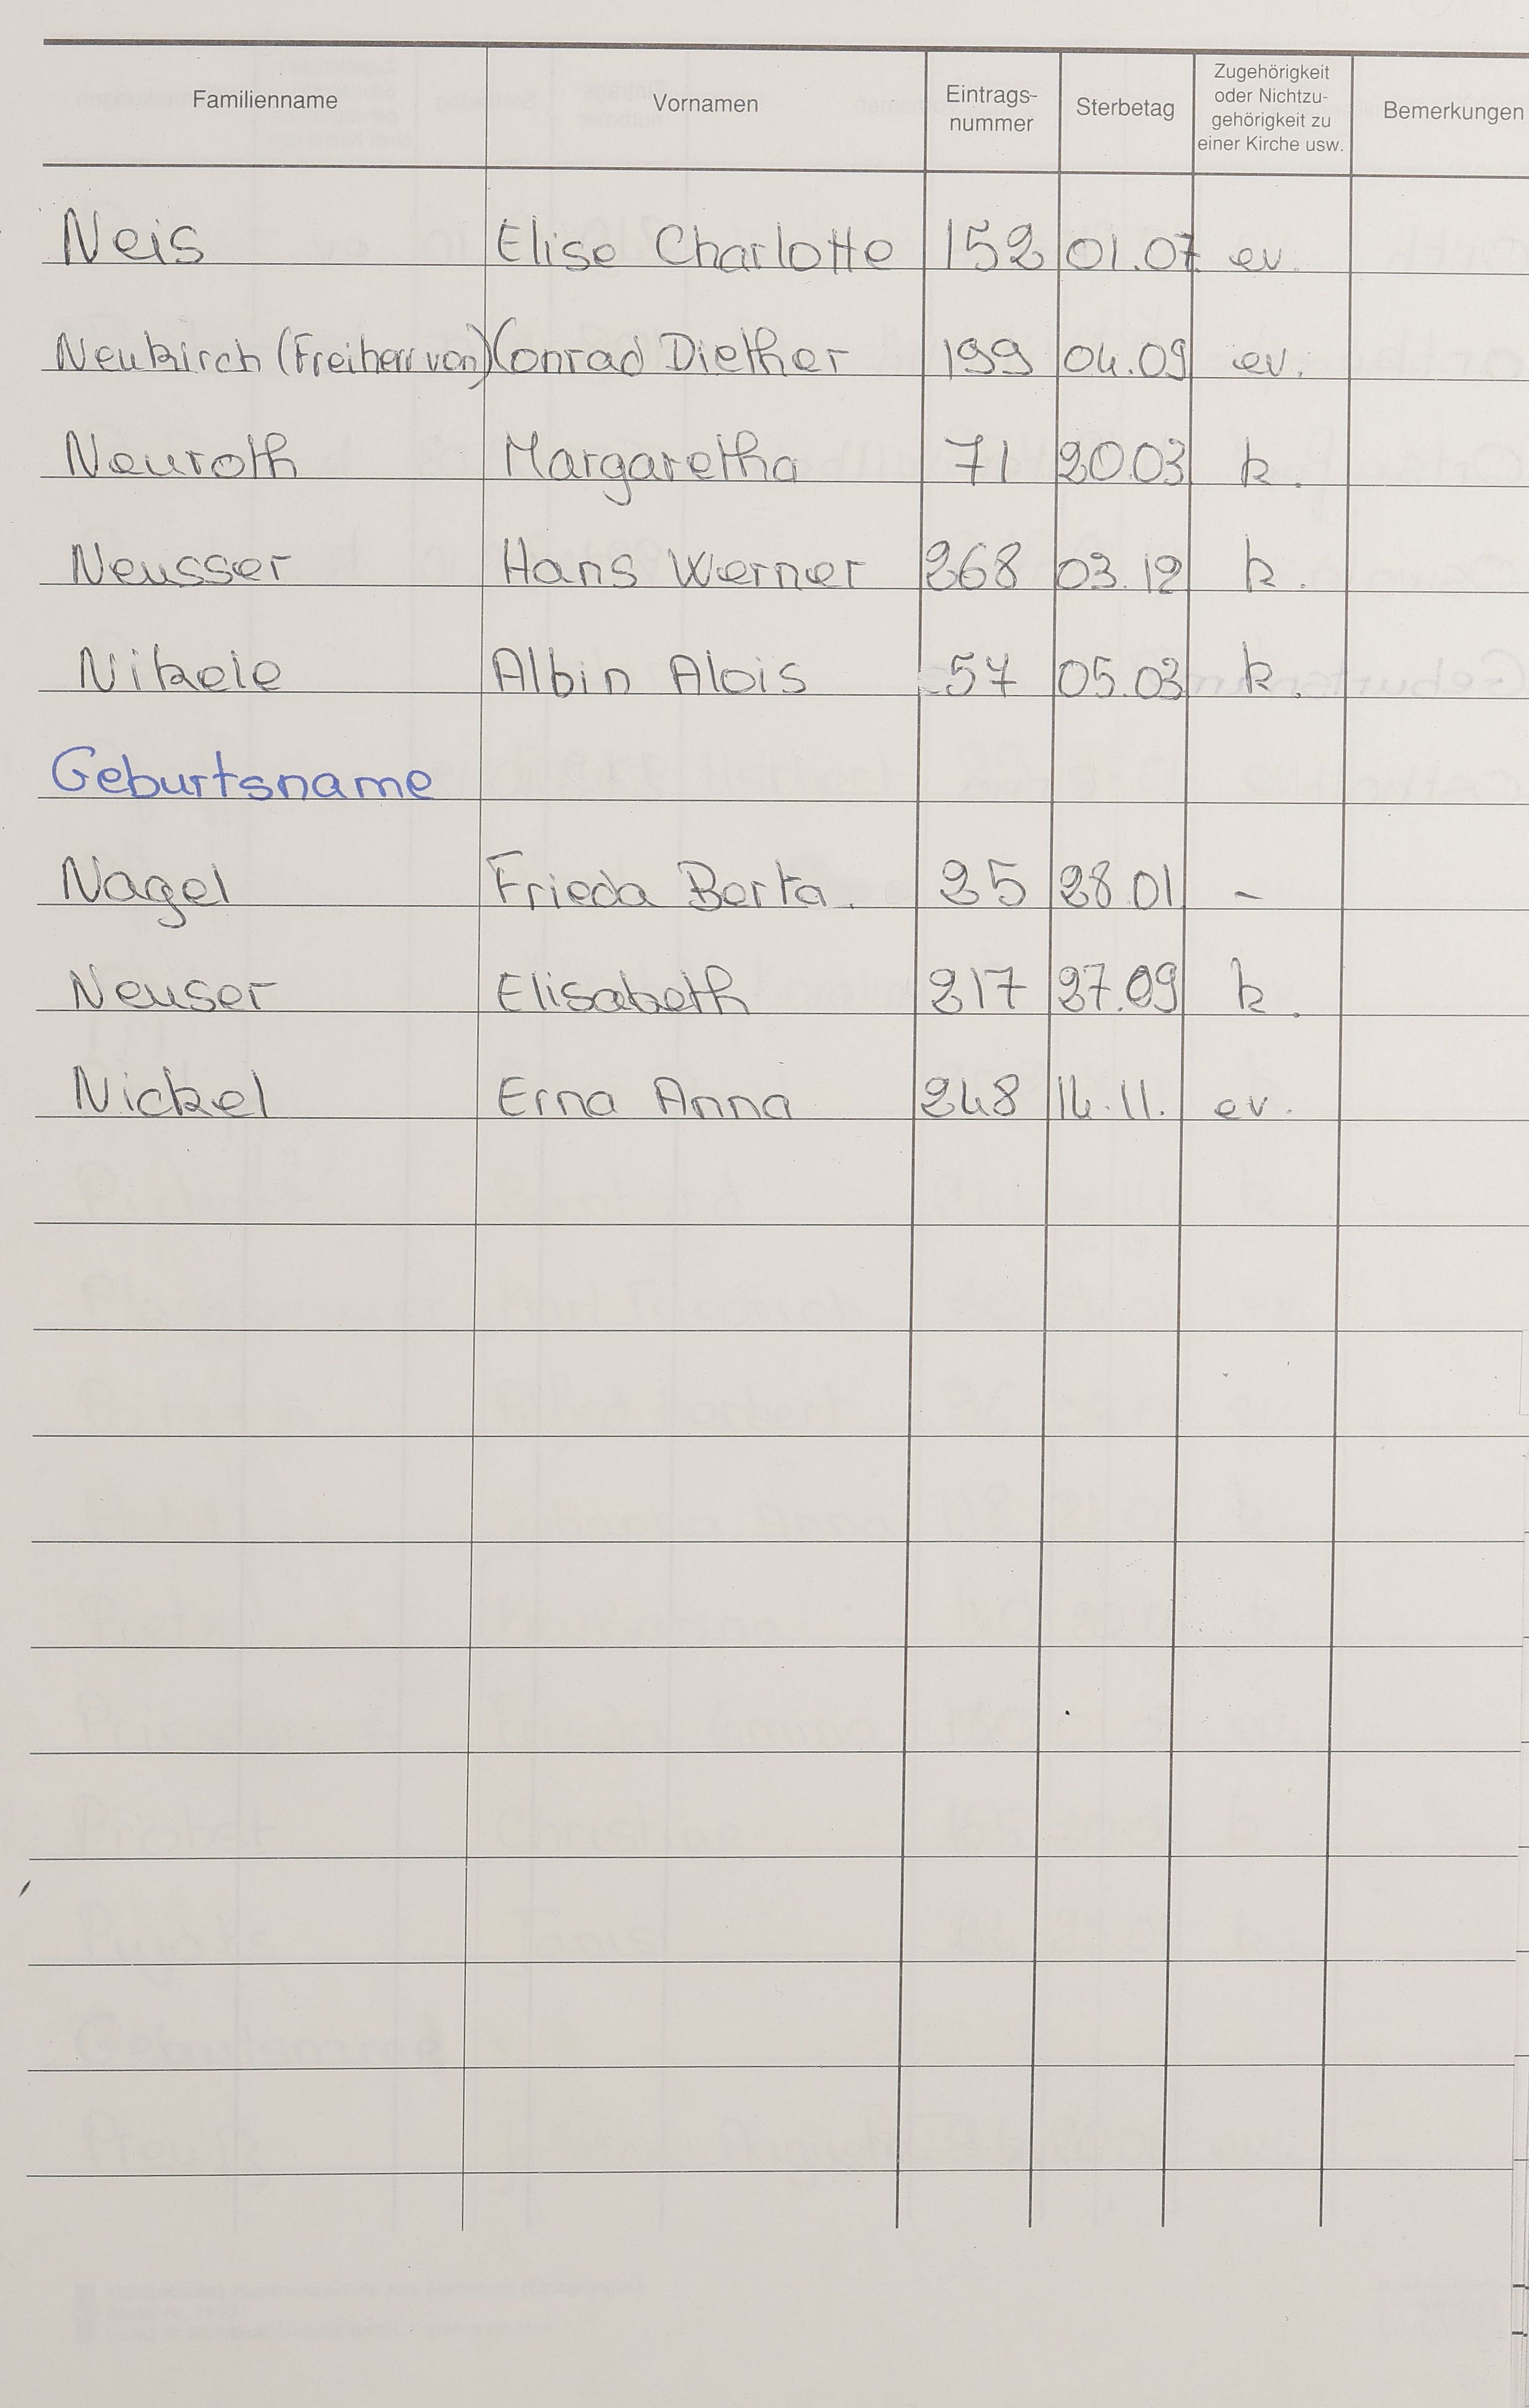 Familienname Vornamen Eintrags-nummer Sterbetag Zugehörigkeit oder Nichtzu-gehörigkeit zu einer Kirche usw. Bemerkungen
Neis Elise Charlotte 152 01.07 ev.
Neukirch (Freiherr von) Conrad Diether 199 04.09 ev.
Neuroth Margaretha 71 20.03 k.
Neusser Hans Werner 268 03.12 k.
Nikele Albin Alois 57 05.03 k.
Geburtsname
Nagel Frieda Berta. 25 28.01 -
Neuser Elisabeth 217 27.09 k.
Nickel Erna Anna 248 14.11. ev.